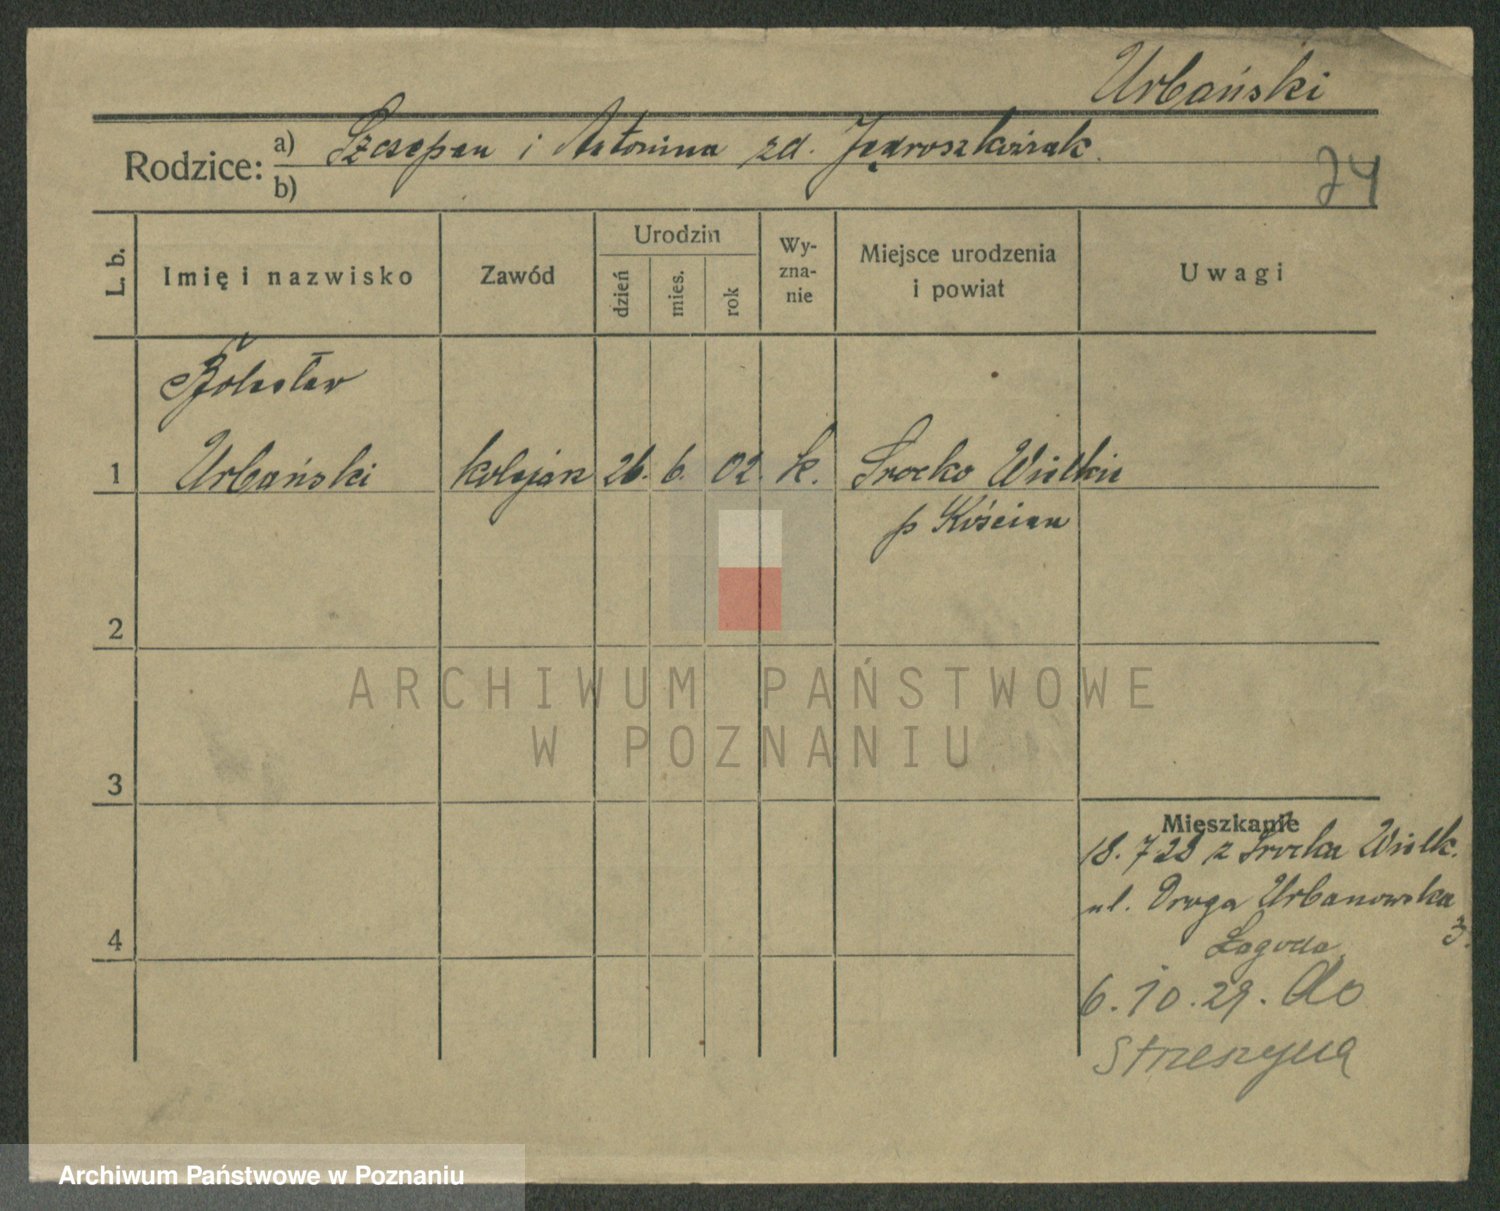 Urbański
Rodzice: a) Szczepan i Antonina zd. Jędroszkowiak.
b)
24
L. b.
Imię i nazwisko
Zawód
Urodzin
dzień
mies.
rok
Wy-
zna-
nie
Miejsce urodzenia
i powiat
Uwagi
Bolesław
1 Urbański kolejarz 26. 6. 02. k. Srocko Wielkie
p Kościan
2
ARCHIWUM PAŃSTWOWE
W POZNANIU
3
Mieszkanie
18. 7 28 z Srocka Wielk.
ul. Droga Urbanowska
3.
Łagoda
4
6. 10. 29. do
Strzeszyna
Archiwum Państwowe w Poznaniu